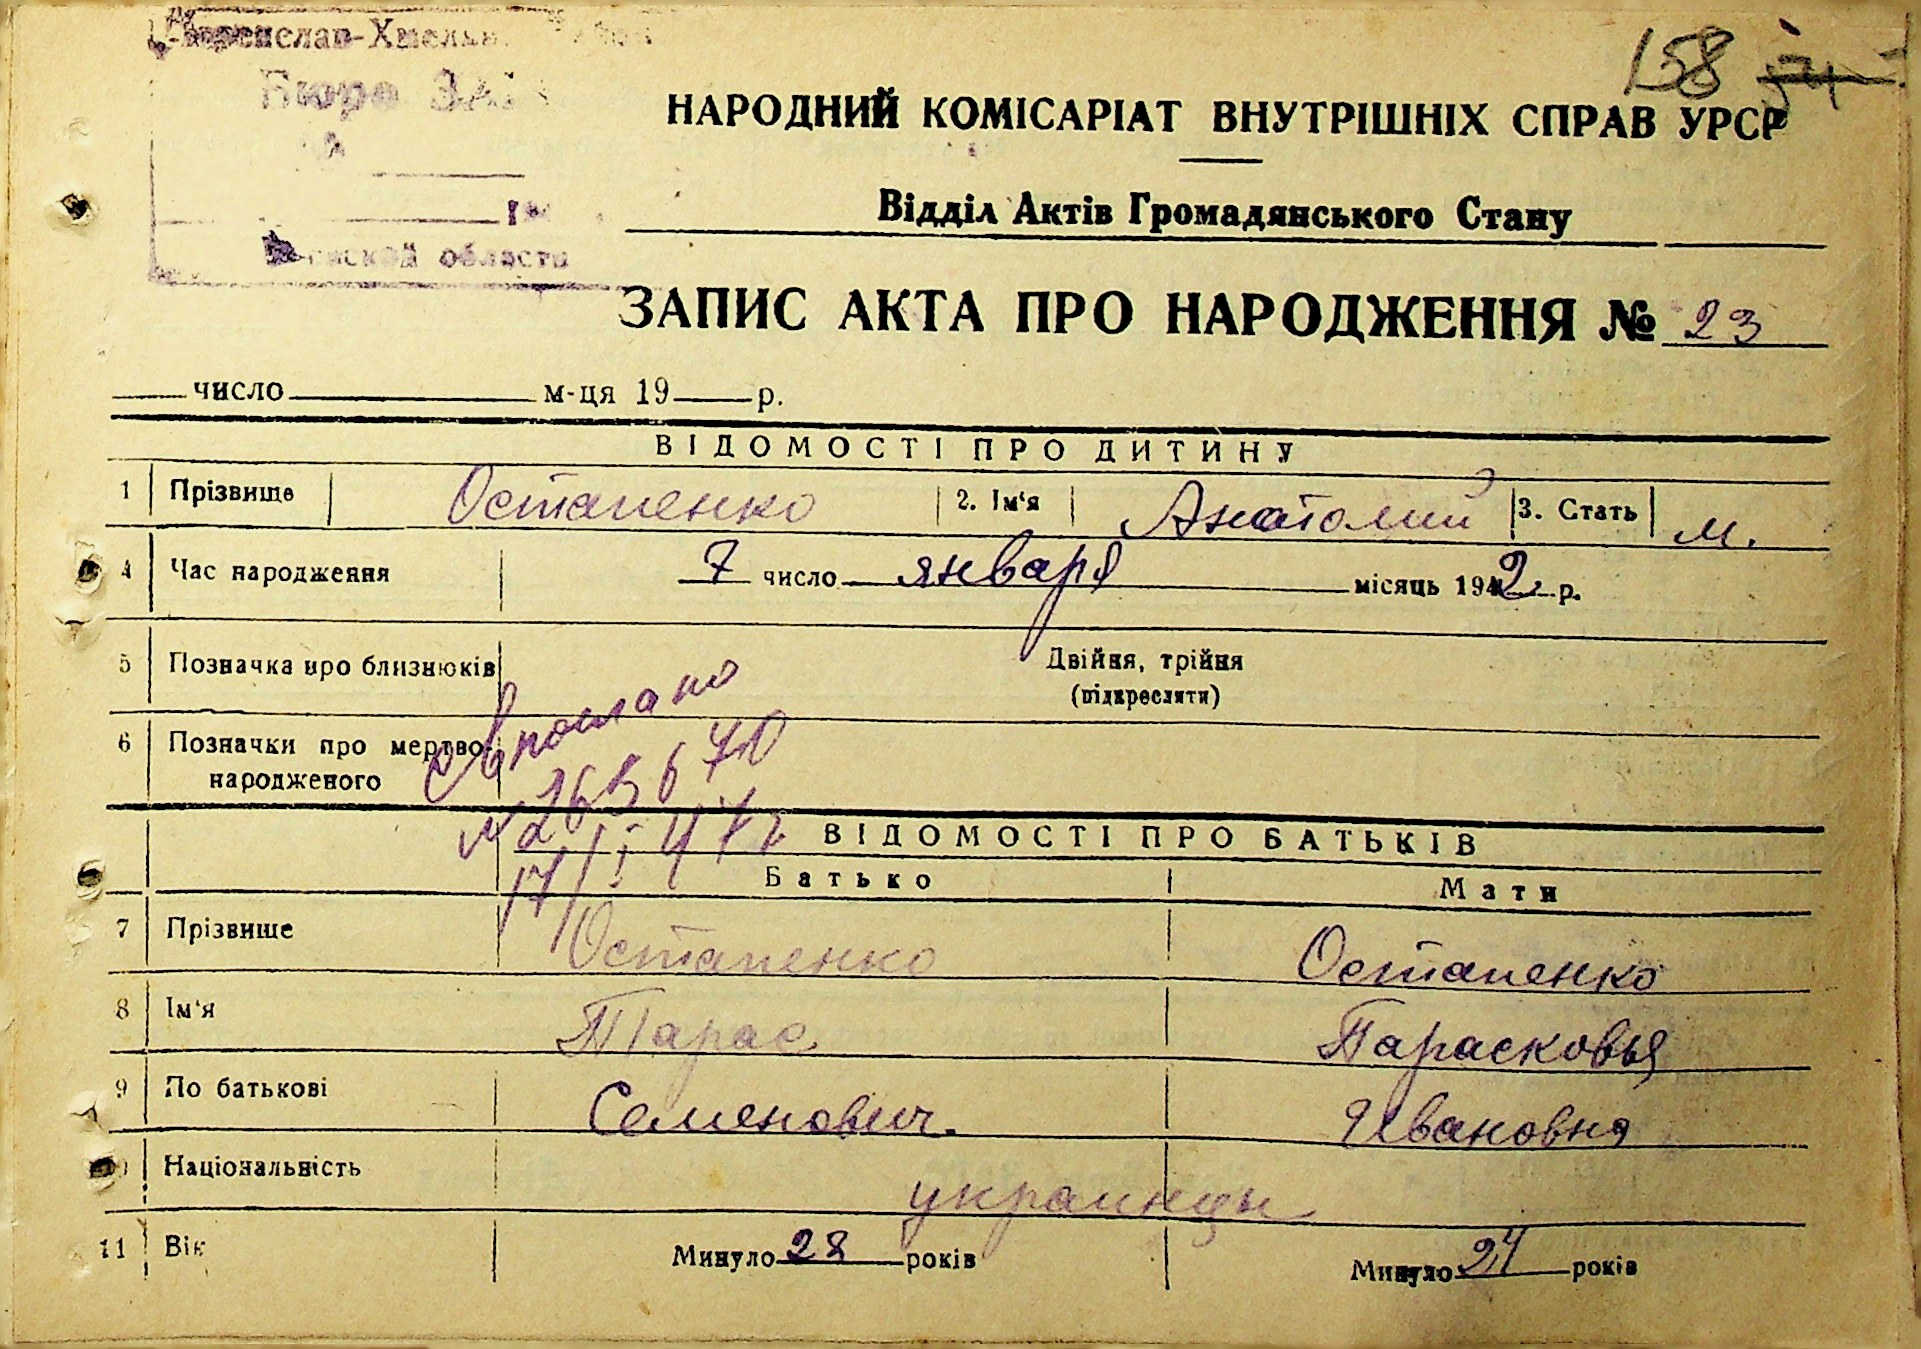 158
Бюро
области
НАРОДНИЙ КОМІСАРІАТ ВНУТРІШНІХ СПРАВ УРСР
Відділ Актів Громадянського Стану
ЗАПИС АКТА ПРО НАРОДЖЕННЯ № 23
число м-ця 19 р.
ВІДОМОСТІ ПРО ДИТИНУ
1 Прізвище Остапенко 2. Ім'я Анатолий 3. Стать м.
4 Час народження 7 число января місяць 1942 р.
5 Позначка про близнюків Двійня, трійня
(підкреслити)
6 Позначки про мертво-
народженого
№ 265670
17/I-47г
ВІДОМОСТІ ПРО БАТЬКІВ
Батько Мати
7 Прізвище Остапенко Остапенко
8 Ім'я Тарас Парасковья
9 По батькові Семенович. Ивановна
Національність украинцы
11 Вік Минуло 28 років Минуло 24 років